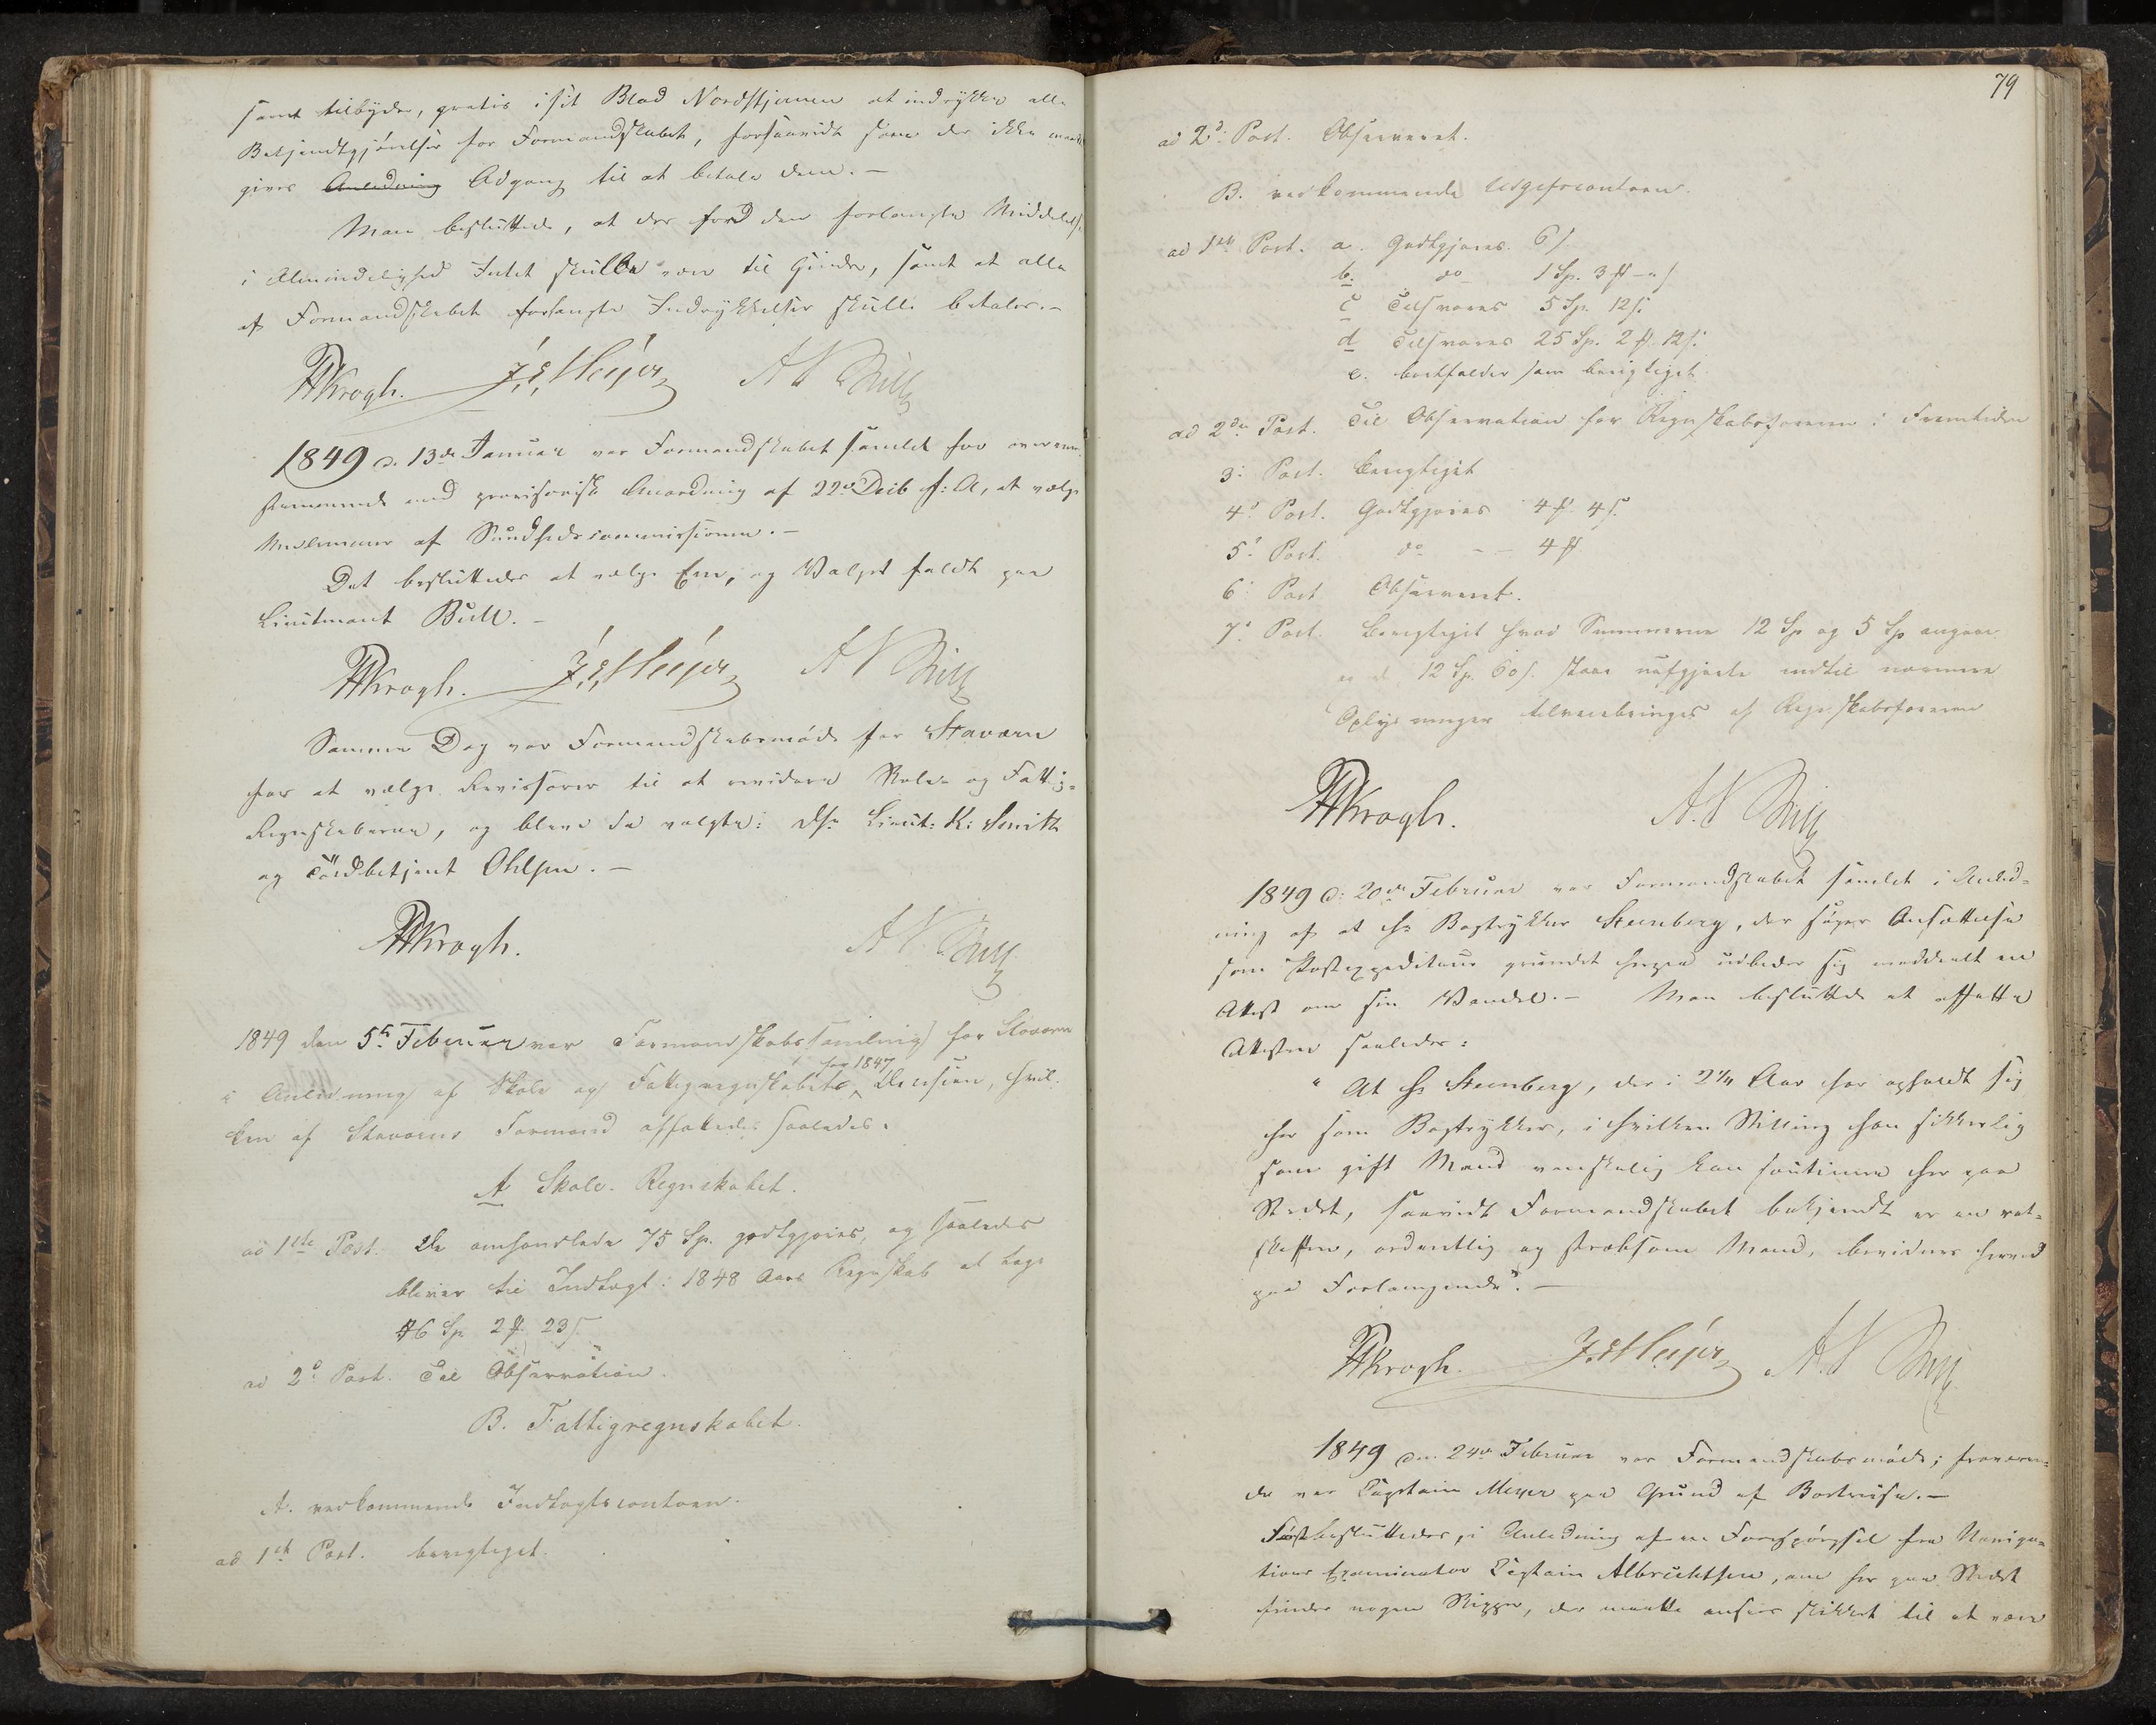 samt tilbyder, gratis i sit Blad Nordstjernen at indrykke alle
Bekjendtgjørelser for Formandskabet, forsaavidt som der ikke
gives Anledning Adgang til at betale dem. –
Man besluttede, at der for den forlangte
i Almindelighed Intet skulle være til Hinder, samt at alle
af Formandskabet forlangte Indrykkelser skulle betales. –
Krogh. J. E. Meyer A N Bull
1849 d. 13de Januar var Formandskabet samlet for overeens-
stemmende med provisorisk Anordning af 22de Decb f: A, at vælge
Medlemmer af Sundhedscommissionen. –
Det besluttedes at vælge Een, og Valget faldt paa
Lieutnant Bull. –
Krogh. J. E. Meyer A N Bull
Samme Dag var Formandskabsmøde for Staværn
for at vælge Revisorer til at revidere Skole- og Fattig-
Regnskaberne, og bleve da valgte: Hr. Lieut: K: Smith
og Toldbetjent Ohlsen. –
Krogh. A N. Bull
1849 den 5te Februar var Formandskabssamling for Staværn
i Anledning af Skole og Fattigregnskabets Decision, hvil-
for 1847
ken af Staværns Formænd affattedes saaledes.
A Skole-Regnskabet.
ad 1ste Post. De omhandlede 75 Sp. godtgjøres, og saaledes
bliver til Indtægt i 1848 Aars Regnskab at tage
46 Sp 2 # 23 s.
ad 2d Post. Til Observation.
B. Fattigregnskabet.
A. vedkommende Indtægtscontoen.
ad 1ste Post. berigtiget.
79
ad 2d. Post. Observeret.
B. vedkommende Udgiftscontoen.
ad 1ste Post. a. Godtgjøres. 6 s.
b. do 1 Sp. 3 # – " s
c Tilsvares 5 Sp. 12 s:
d Tilsvares 25 Sp. 2 # 12 s:
e. bortfalder som berigtiget.
ad 2den Post. Til Observation for Regnskabsføreren i Fremtiden
3: Post. Berigtiget
4: Post. Godtgjøres 4 # 4 s.
5: Post. do – – 4 #
6: Post Observeret.
7: Post. Berigtiget hvad Summerne 12 Sp og 5 Sp angaar
12 Sp. 60 s. staae uafgjorte indtil nærmere
Oplysninger tilveiebringes af Regnskabsføreren
Krogh. A. N Bull
1849 d: 20de Februar var Formandskabet samlet i Anled-
ning af at Hr Bogtrykker Steenberg, der søger Ansættelse
som Postexpediteur udbeder sig meddeelt en
Attest om sin Vandel. – Man besluttede at affatte
Attesten saaledes:
"At Hr Steenberg, der i 2 1/4 Aar har opholdt sig
her som Bogtrykker, i hvilken Stilling han sikkerlig
som gift Mand vanskelig kan soutinere her paa
Stedet, saavidt Formandskabet bekjendt er en ret-
skaffen, ordentlig og stræbsom Mand, bevidnes herved
paa Forlangende". –
Krogh. J. E. Meyer A. N Bull
1849 den 24de Februar var Formandskabsmøde; fraværen-
de var Captain Meyer paa Grund af Bortreise. –
Først besluttedes, i Anledning af en Forespørgsel fra Naviga-
tions Examinator Captain Albrechtsen, om her paa Stedet
findes nogen Skipper, der maatte ansees skikket til at være